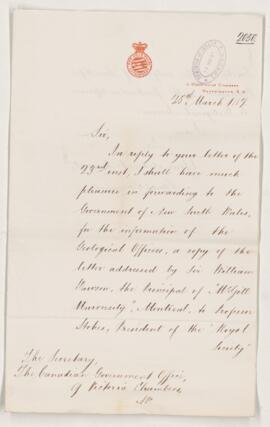 2030.
5 Victoria Chambers
Westminster, S.W.
25th March 1887
Sir,
In reply to your letter of the
23rd inst, I shall have much
pleasure in forwarding to the
Government of New South Wales,
for the information of the
Geological Officers, a copy of the
letter addressed by Sir William
Dawson, the Principal of "McGill
University", Montreal, to Professor
Stokes, President of the "Royal
Society"
The Secretary,
The Canadian Government Office,
9 Victoria Chambers,